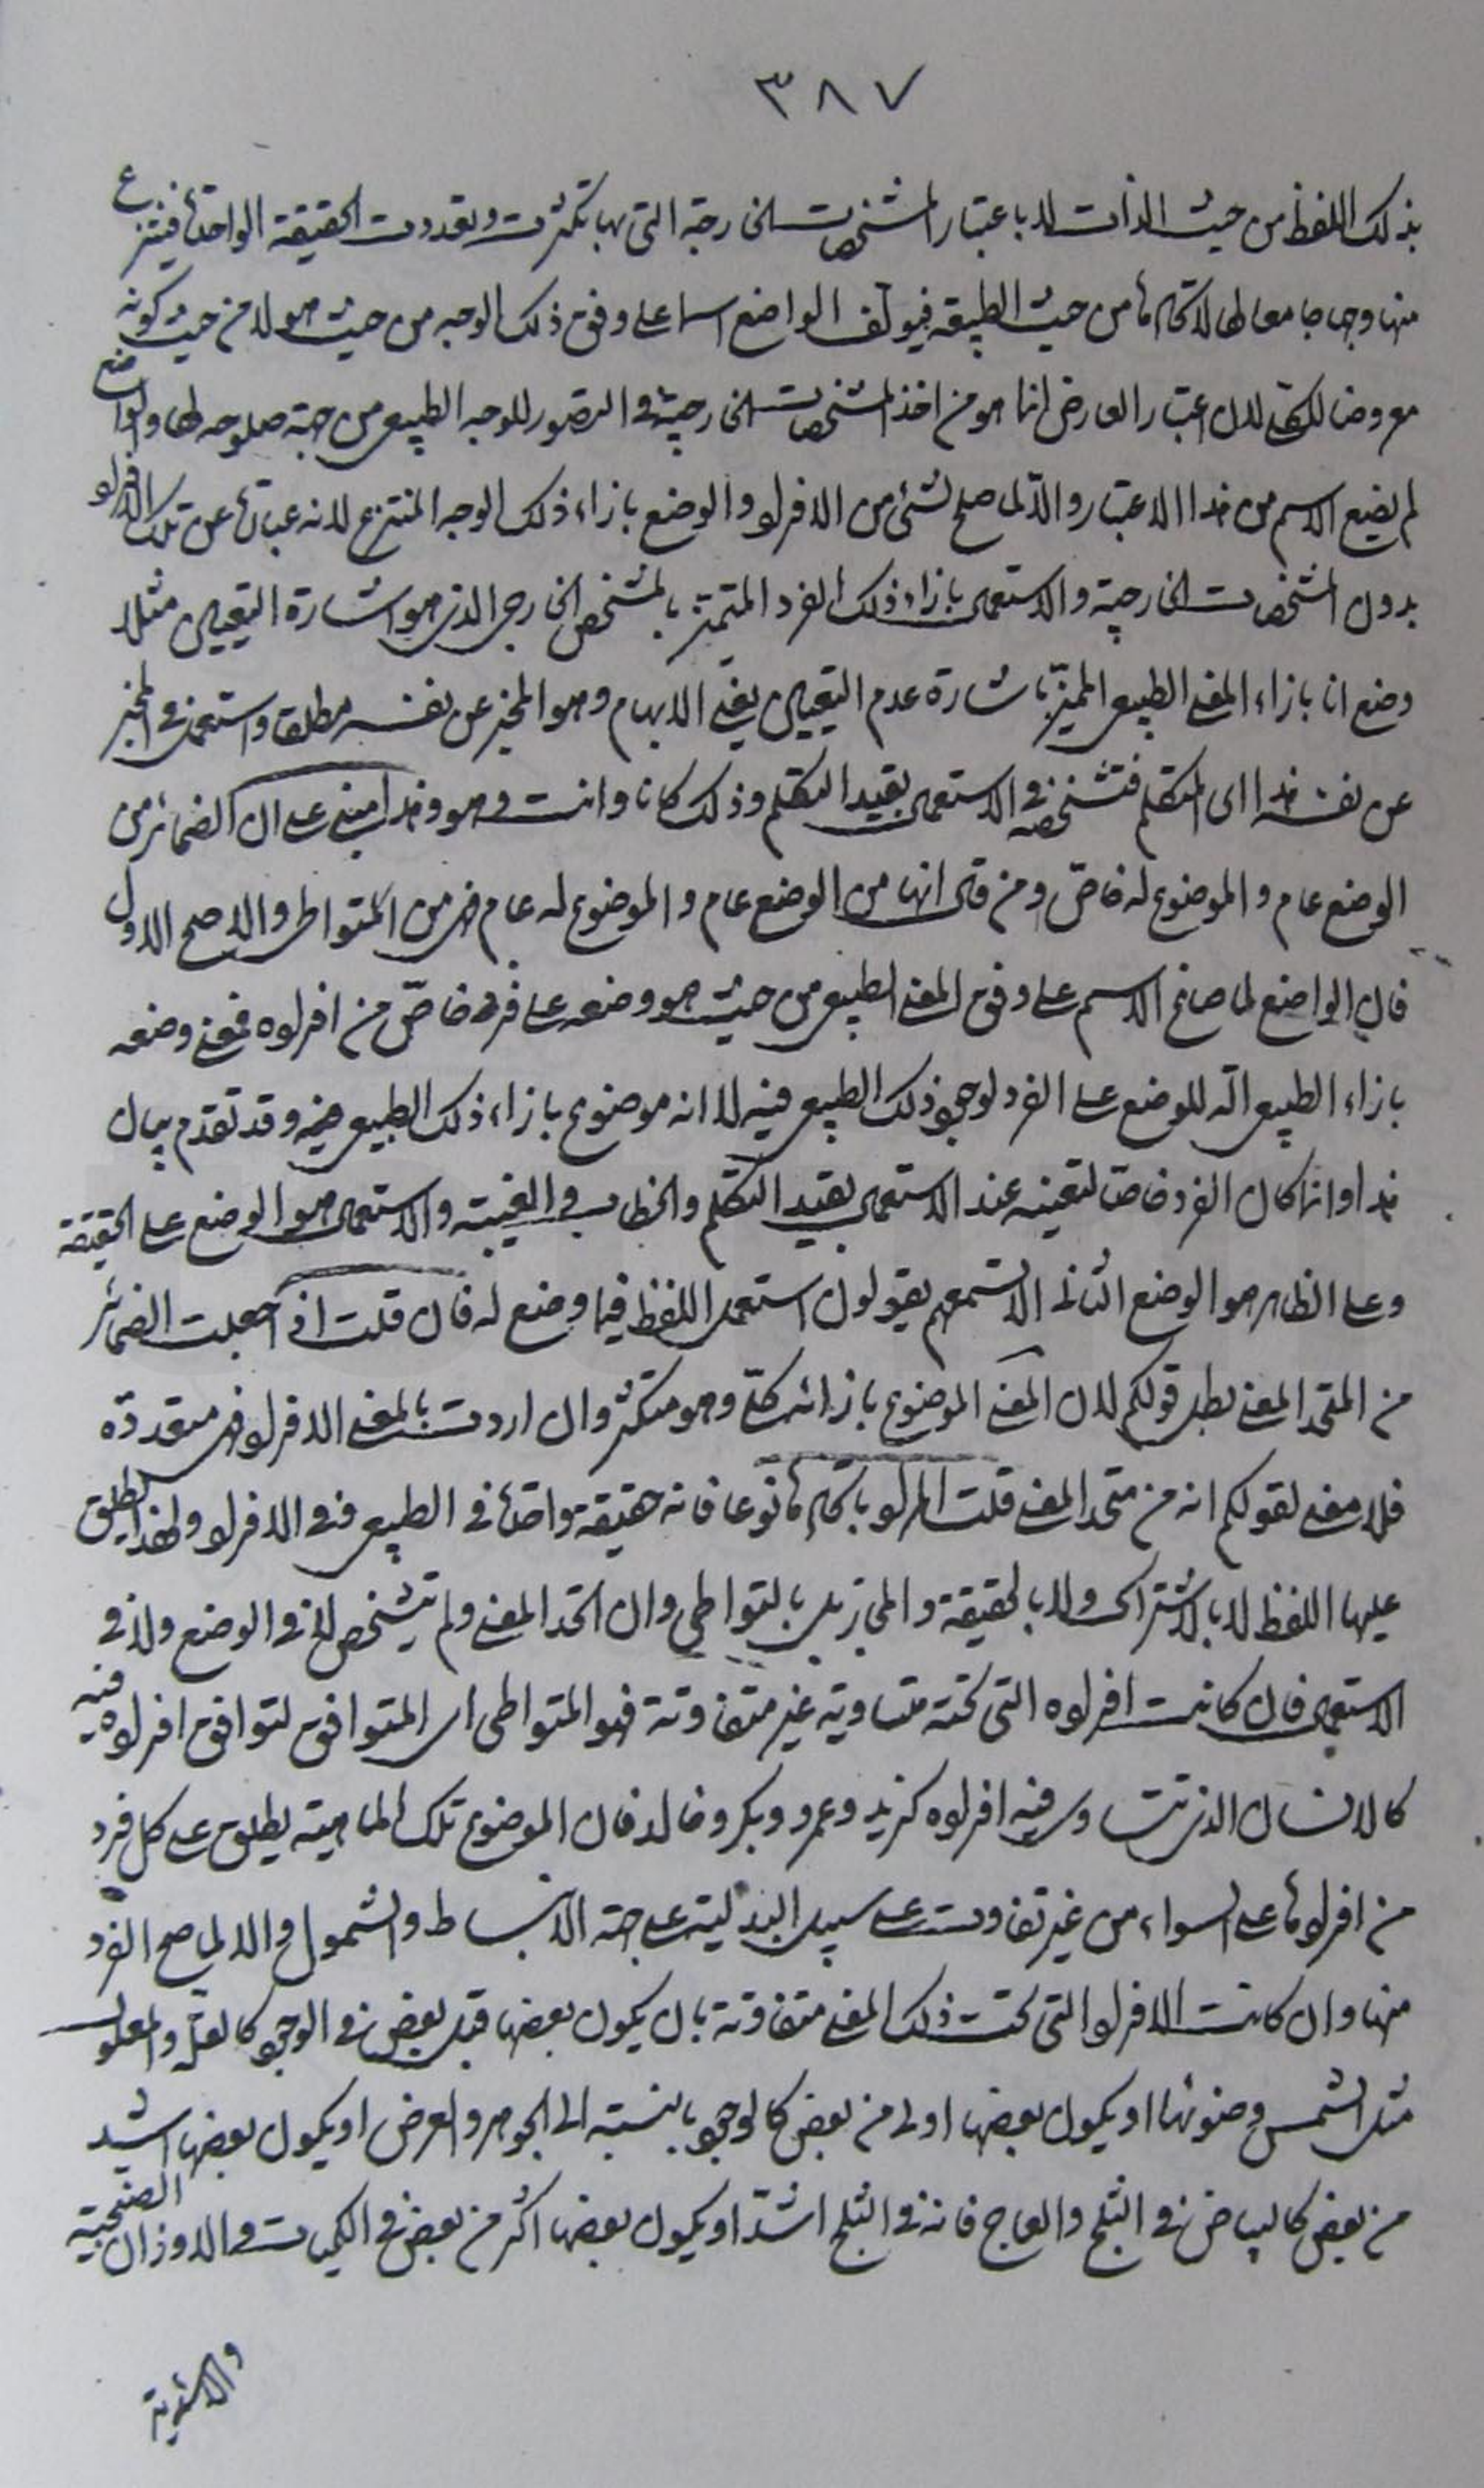 ٣٨٧
بذلك اللفظ من حيث الذات لا باعتبار المشخصات الخارجة التى بها تكثرت وتعددت الحقيقة الواحدة فينتزع
منها وجها جامعا لها لاتحادها من حيث الطبيعة فيؤلف الواضع اسما على وفق ذلك الوجه من حيث هو لا من حيث كونه
معروضا للكلى لان اعتبار العارض انما هو من اخذ المشخصات الخارجية فى التصور للوجه الطبيعى من جهة صلوحه لها والواضع
لم يضع الاسم من هذا الاعتبار والا لما صلح لشئ من الافراد والوضع بازاء ذلك الوجه المنتزع لانه عبارة عن تلك الافراد
بدون المشخصات الخارجية والاستعمال بازاء ذلك الفرد المتميز بالمشخص الخارجى الذى هو اشارة التعيين مثلا
وضع انا بازاء المعنى الطبيعى المميز باشارة عدم التعيين يعنى الابهام وهو المخبر عن نفسه مطلقا واستعمل فى المخبر
عن نفسه هذا اى المتكلم فتشخصه فى الاستعمال بقيد التكلم وذلك كانا وانت وهو وهذا مبنى على ان الضمائر من
الوضع عام والموضوع له خاص ومن قال انها من الوضع عام والموضوع له عام فهى من المتواطى والاصح الاول
فان الواضع لما صاغ الاسم على وفق المعنى الطبيعى من حيث هو وضعه على فرد خاص من افراده فمعنى وضعه
بازاء الطبيعى انه للوضع على الفرد لوجود ذلك الطبيعى فيه لا انه موضوع بازاء ذلك الطبيعى وقد تقدم بيان
هذا وانما كان الفرد خاصا لتعينه عند الاستعمال بقيد التكلم والخطاب والغيبة والاستعمال هو الوضع على الحقيقة
وعلى الظاهر هو الوضع الثانى الا تسمعهم يقولون استعمل اللفظ فيما وضع له فان قلت اذا جعلت الضمائر
من المتحد المعنى بطل قولكم لان المعنى الموضوع بازائه كلى وهو متكثر وان اردت بالمعنى الافراد فهى متعددة
فلا معنى لقولكم انه من متحد المعنى قلت المراد باتحادها نوعا فانه حقيقة واحدة فى الطبيعى وفى الافراد ولهذا يطلق
عليها اللفظ لا بالاشتراك ولا بالحقيقة والمجاز بل بالتواطى وان اتحد المعنى ولم يتشخص لا فى الوضع ولا فى
الاستعمال فان كانت افراده التى تحته متساوية غير متفاوتة فهو المتواطى اى المتوافق لتوافق افراده فيه
كالانسان الذى تتساوى فيه افراده كزيد وعمرو وبكر وخالد فان الموضوع تلك الماهية يطلق على كل فرد
من افرادها على السواء من غير تفاوت على سبيل البدلية على جهة الانبساط والشمول والا لما صح الفرد
منها وان كانت الافراد التى تحت ذلك المعنى متفاوتة بان يكون بعضها قبل بعض فى الوجود كالعلة والمعلول
مثل الشمس وضوئها او يكون بعضها اولى من بعض كالوجود بالنسبة الى الجوهر والعرض او يكون بعضها اشد
من بعض كالبياض فى الثلج والعاج فانه فى الثلج اشد او يكون بعضها اكثر من بعض فى الكميات والاوزان